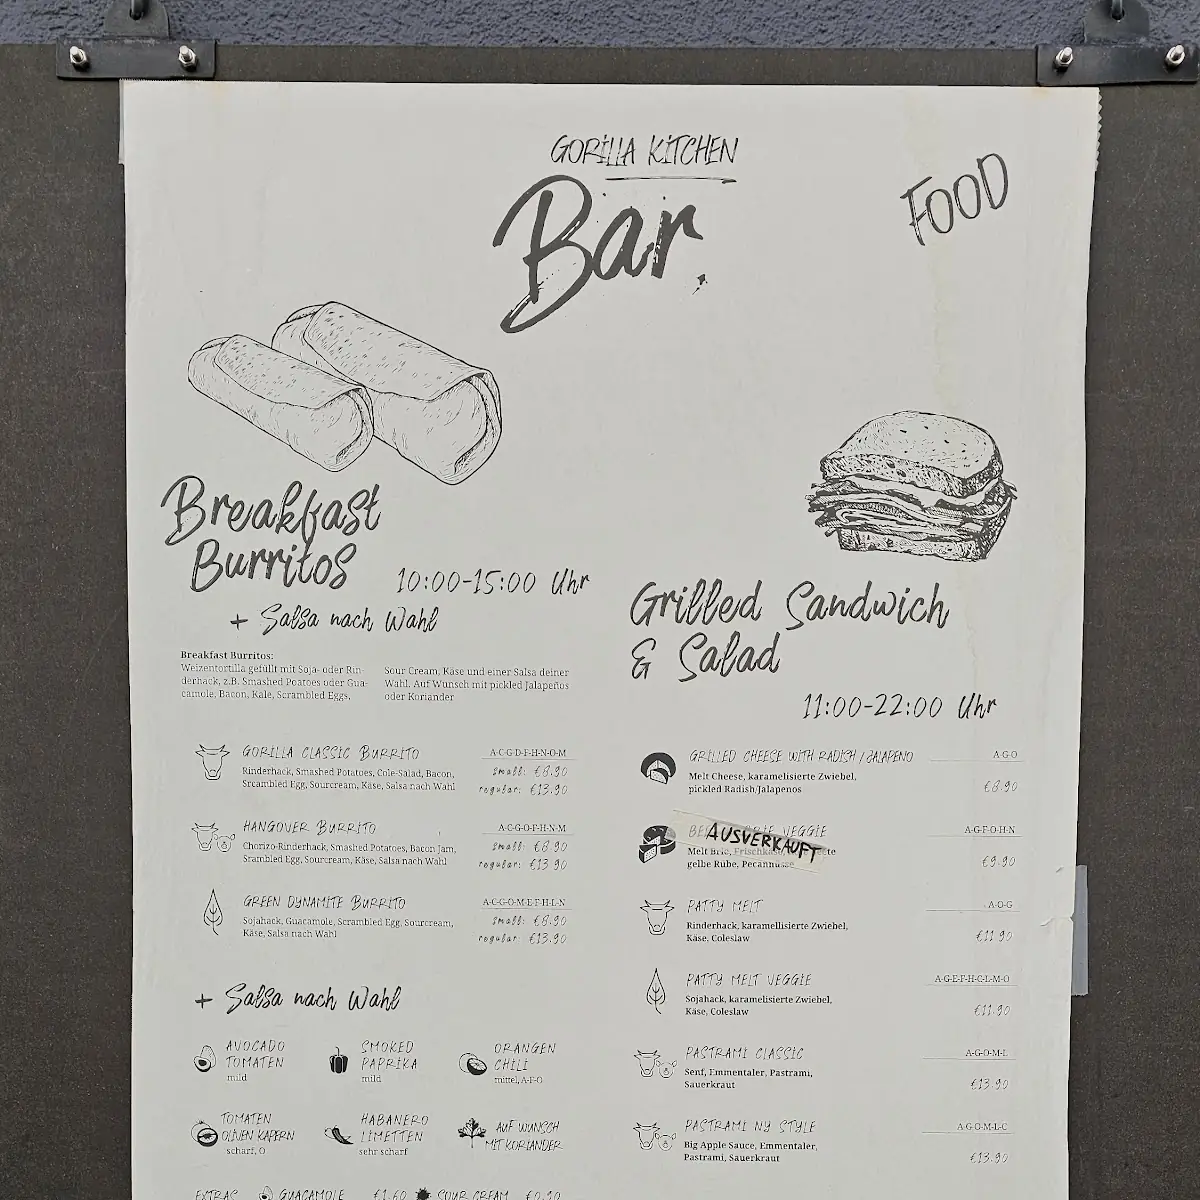 GORILLA KITCHEN
Bar.
FOOD
Breakfast
Burritos
10:00-15:00 Uhr
+ Salsa nach Wahl
Breakfast Burritos:
Weizentortilla gefüllt mit Soja- oder Rin-
derhack, z.B. Smashed Poatoes oder Gua-
camole, Bacon, Kale, Scrambled Eggs,
Sour Cream, Käse und einer Salsa deiner
Wahl. Auf Wunsch mit pickled Jalapeños
oder Koriander
GORILLA CLASSIC BURRITO A-C-G-D-F-H-N-O-M
Rinderhack, Smashed Potatoes, Cole-Salad, Bacon,
Srcambled Egg, Sourcream, Käse, Salsa nach Wahl
small: €8.90
regular: €13.90
HANGOVER BURRITO A-C-G-O-F-H-N-M
Chorizo-Rinderhack, Smashed Potatoes, Bacon Jam,
Srambled Egg, Sourcream, Käse, Salsa nach Wahl
small: €8.90
regular: €13.90
GREEN DYNAMITE BURRITO A-C-G-O-M-E-F-H-L-N
Sojahack, Guacamole, Scrambled Egg, Sourcream,
Käse, Salsa nach Wahl
small: €8.90
regular: €13.90
+ Salsa nach Wahl
AVOCADO
TOMATEN
mild
SMOKED
PAPRIKA
mild
ORANGEN
CHILI
mittel, A-F-O
TOMATEN
OLIVEN KAPERN
scharf, O
HABANERO
LIMETTEN
sehr scharf
AUF WUNSCH
MIT KORIANDER
EXTRAS GUACAMOLE €1.60 SOUR CREAM €0.90
Grilled Sandwich
& Salad
11:00-22:00 Uhr
GRILLED CHEESE WITH RADISH / JALAPENO A-G-O
Melt Cheese, karamelisierte Zwiebel,
pickled Radish/Jalapenos
€8.90
BRIE VEGGIE A-G-F-O-H-N
AUSVERKAUFT
Melt Brie, Frischkäse
gelbe Rübe, Pecannüsse
€9.90
PATTY MELT A-O-G
Rinderhack, karamellisierte Zwiebel,
Käse, Coleslaw
€11.90
PATTY MELT VEGGIE A-G-E-F-H-C-L-M-O
Sojahack, karamelisierte Zwiebel,
Käse, Coleslaw
€11.90
PASTRAMI CLASSIC A-G-O-M-L
Senf, Emmentaler, Pastrami,
Sauerkraut
€13.90
PASTRAMI NY STYLE A-G-O-M-L-C
Big Apple Sauce, Emmentaler,
Pastrami, Sauerkraut
€13.90